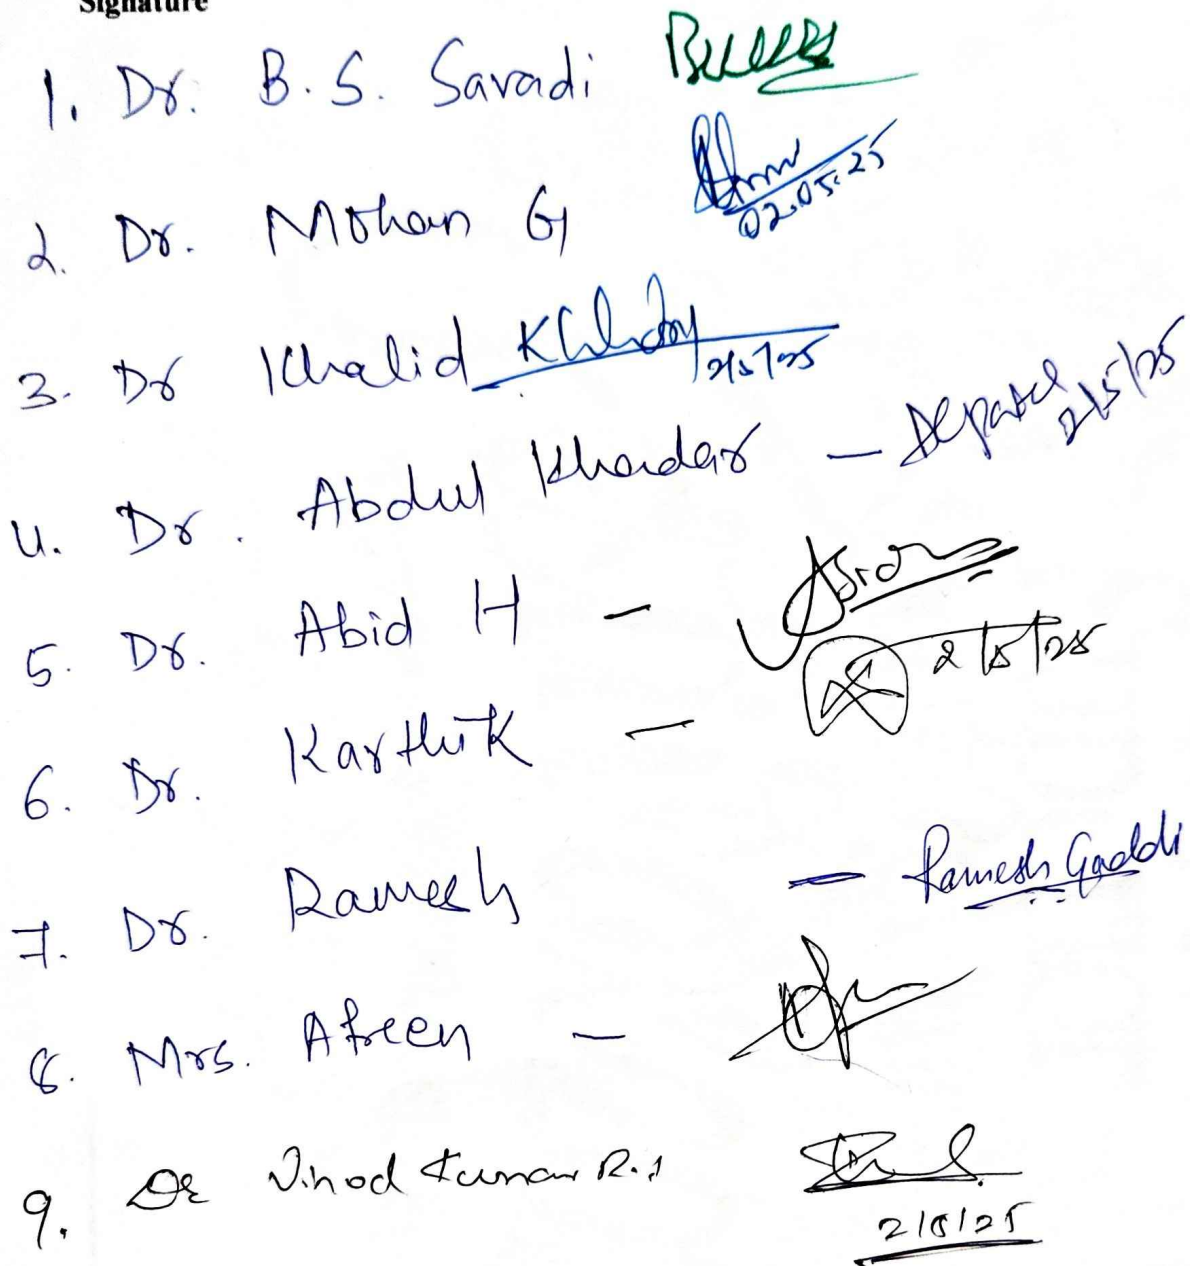 Signature
1. Dr. B. S. Savadi
02.05.25
2. Dr. Mohan G
3. Dr Khalid 2/5/25
4. Dr. Abdul Khadar - 2/5/25
5. Dr. Abid H -
2/5/25
6. Dr. Karthik -
7. Dr. Ramesh - Ramesh Gaddi
8. Mrs. Afreen -
9. Dr Vinod Kumar R.
2/5/25